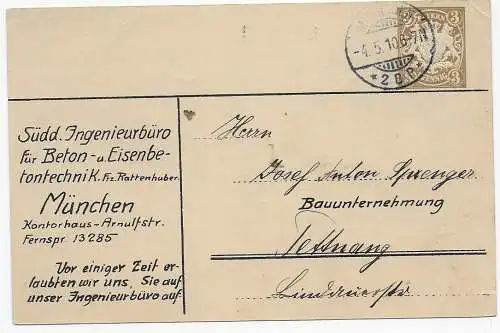 3 3
-4.5.10.6-7N
* 2 B.6 *
Südd. Ingenieurbüro
für Beton- u. Eisenbe-
tontechnik. Frz. Rattenhuber
München
Kontorhaus-Arnulfstr.
Fernspr 13285
Vor einiger Zeit er-
laubten wir uns, Sie auf
unser Ingenieurbüro auf-
Herrn
Josef Anton Sprenger
Bauunternehmung
Tettnang
Lindauerstr